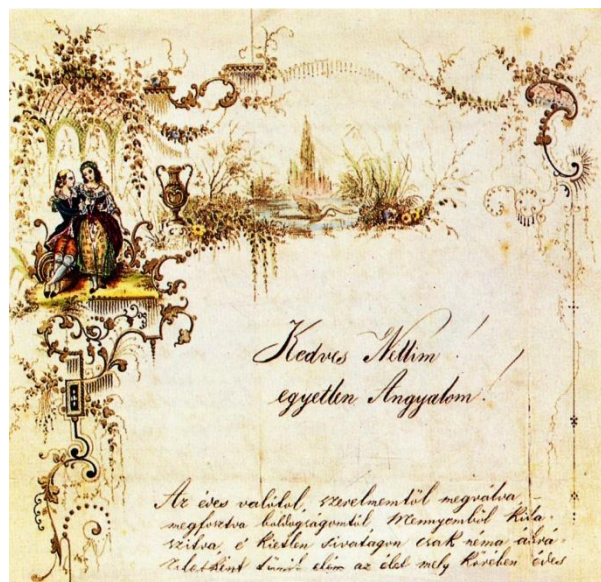 Kedves Nettim!
egyetlen Angyalom!
Az éves valótol, szerelmemtöl megválva,
megfosztva boldogságomtúl, Mennyemböl kita-
szitva, é kietlen sivatagon csak néma
elöm az élet mely Körében éves